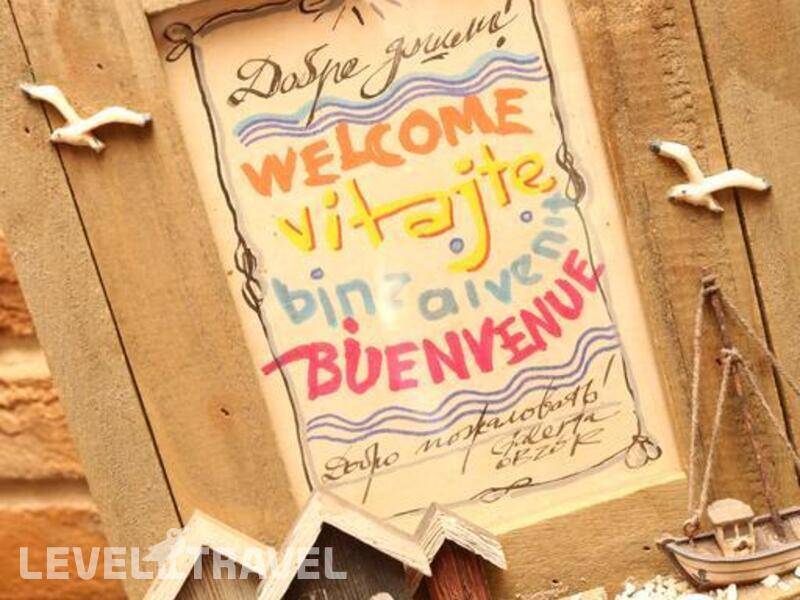 Добре дошли!
WELCOME
vitajte
bine aivenit
BUENVENUE
Добро пожаловать!
Galerja
OBZOR
LEVEL.TRAVEL